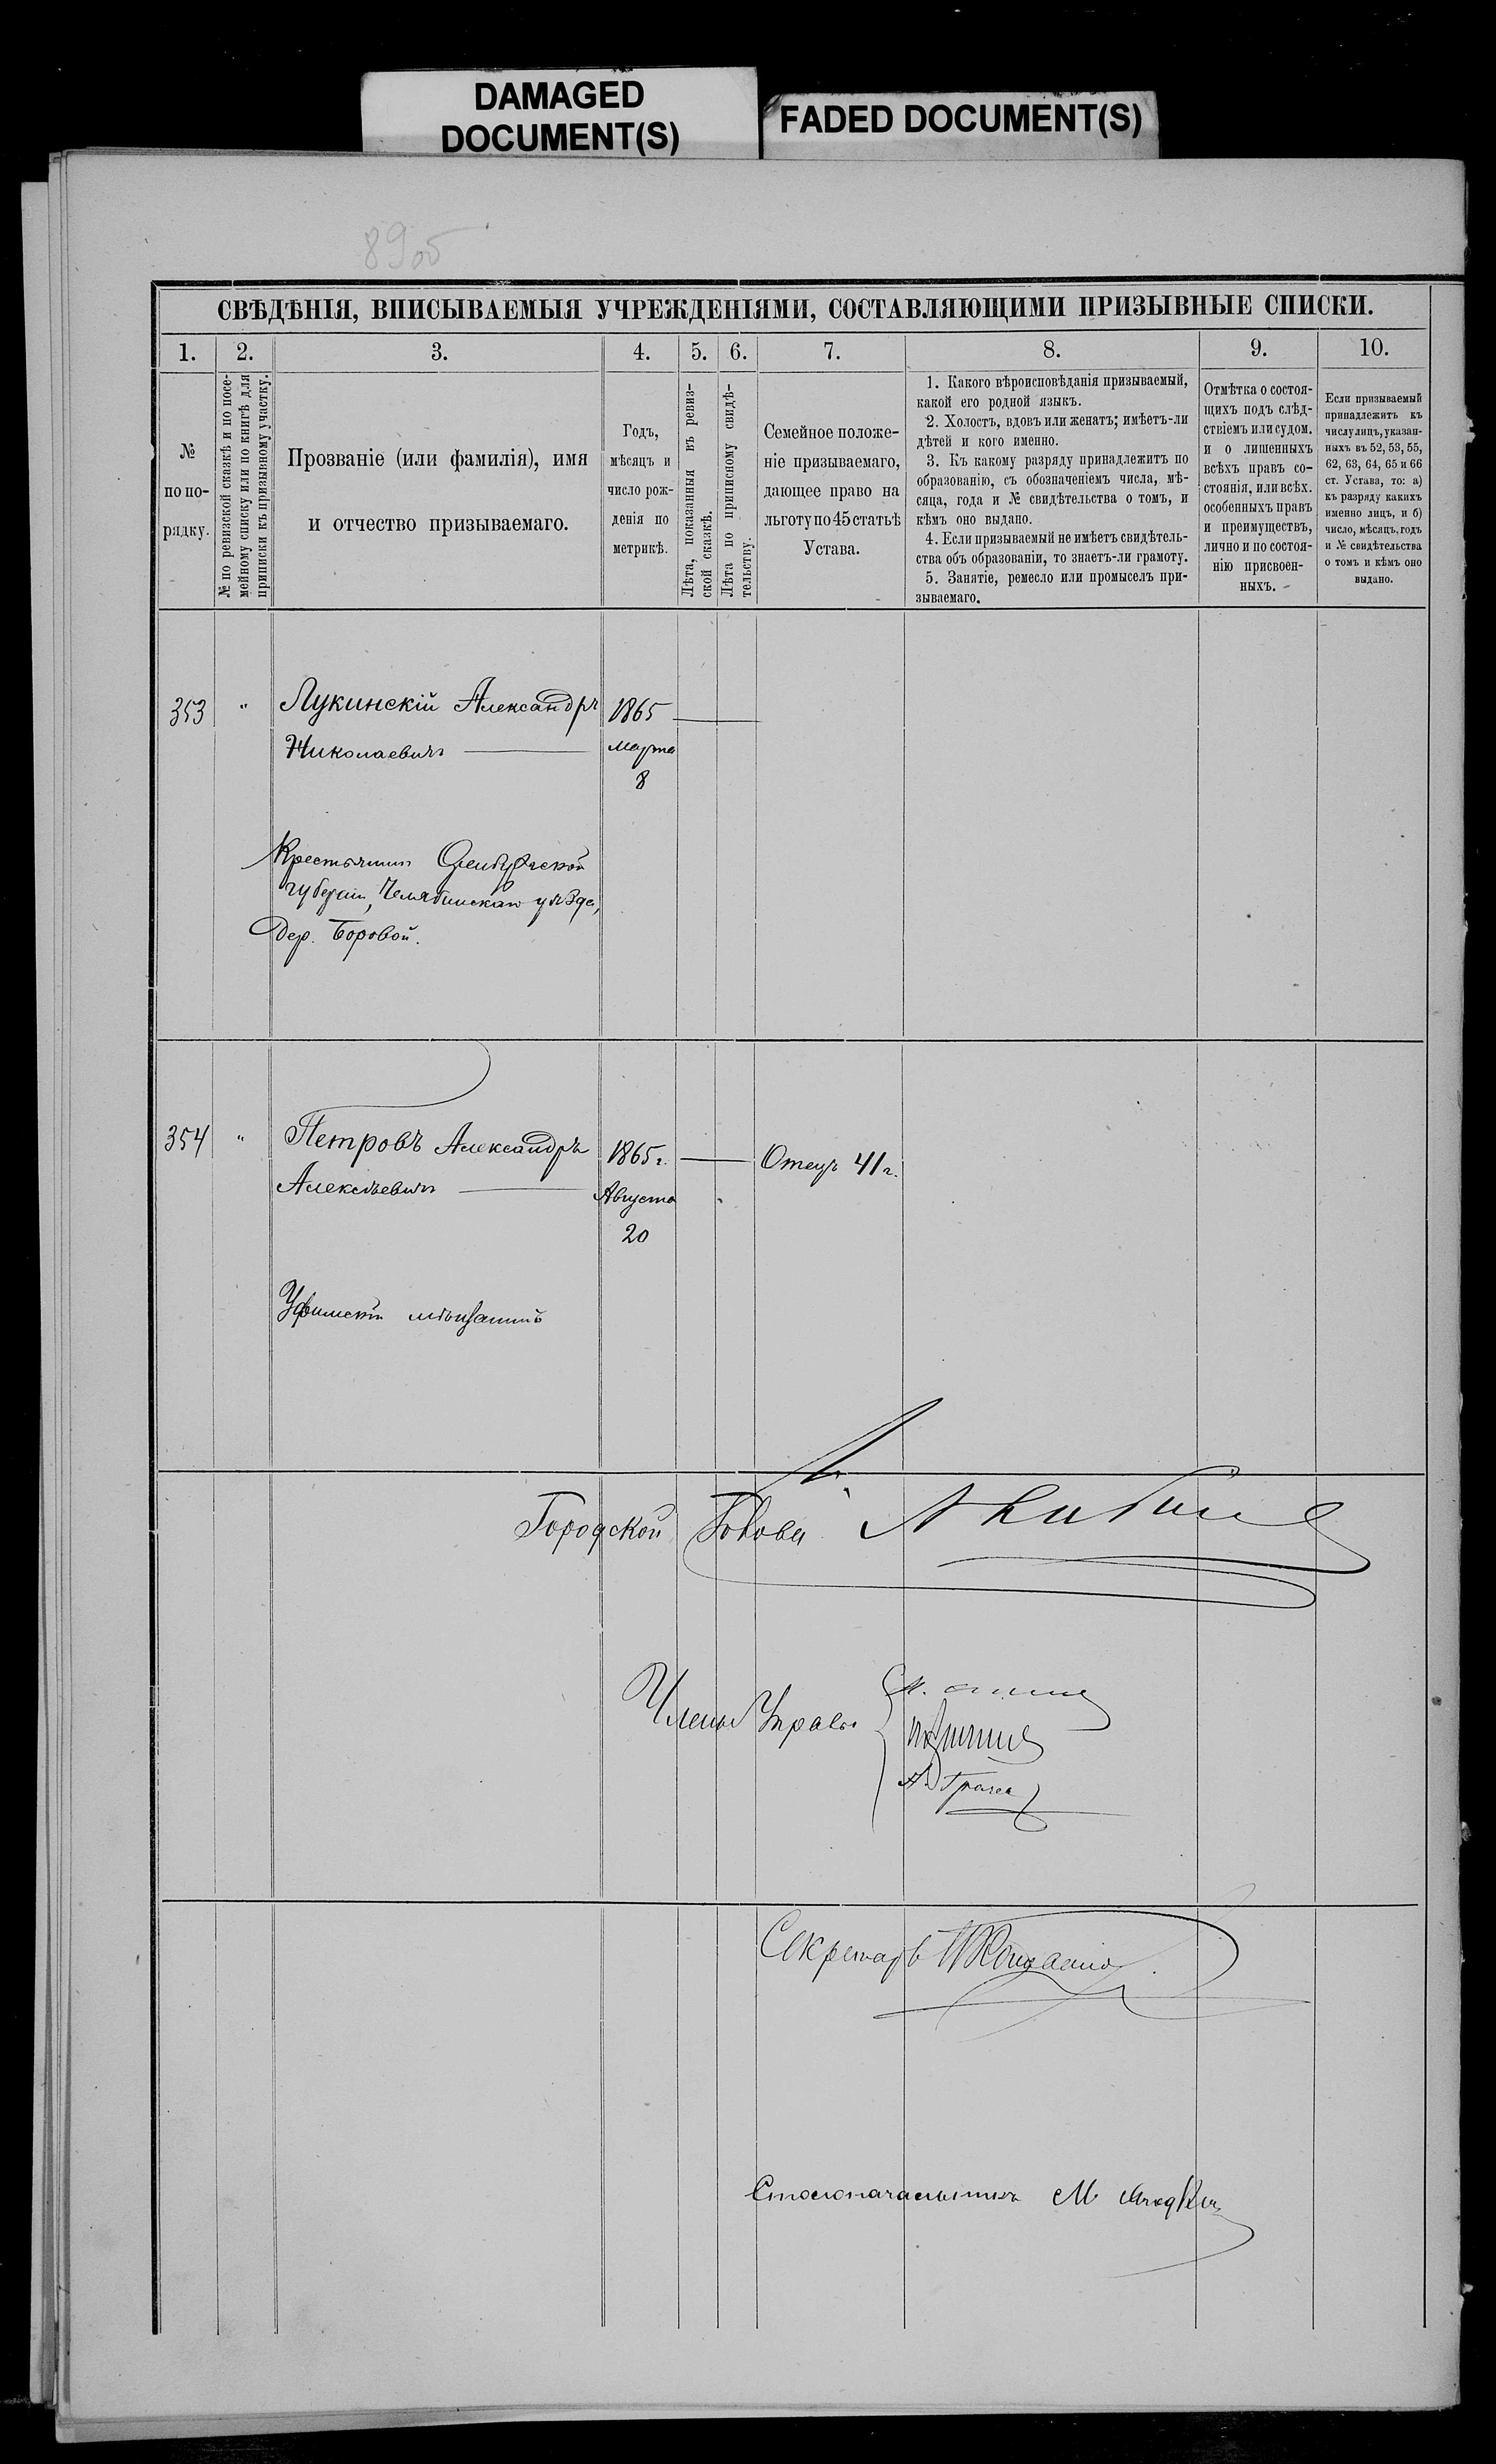 DAMAGED
DOCUMENT(S)
FADED DOCUMENT(S)
89об
СВѢДѢНІЯ, ВПИСЫВАЕМЫЯ УЧРЕЖДЕНІЯМИ, СОСТАВЛЯЮЩИМИ ПРИЗЫВНЫЕ СПИСКИ.
1.
2.
3.
4.
5.
6.
7.
8.
9.
10.
№
по по-
рядку.
№ по ревизской сказкѣ и по посе-
мейному списку или по книгѣ для
приписки къ призывному участку.
Прозваніе (или фамилія), имя
и отчество призываемаго.
Годъ,
мѣсяцъ и
число рож-
денія по
метрикѣ.
Лѣта, показанныя въ ревиз-
ской сказкѣ.
Лѣта по приписному свидѣ-
тельству.
Семейное положе-
ніе призываемаго,
дающее право на
льготу по 45 статьѣ
Устава.
1. Какого вѣроисповѣданія призываемый,
какой его родной языкъ.
2. Холостъ, вдовъ или женатъ; имѣетъ-ли
дѣтей и кого именно.
3. Къ какому разряду принадлежитъ по
образованію, съ обозначеніемъ числа, мѣ-
сяца, года и № свидѣтельства о томъ, и
кѣмъ оно выдано.
4. Если призываемый не имѣетъ свидѣтель-
ства объ образованіи, то знаетъ-ли грамоту.
5. Занятіе, ремесло или промыселъ при-
зываемаго.
Отмѣтка о состоя-
щихъ подъ слѣд-
ствіемъ или судом.
и о лишенныхъ
всѣхъ правъ со-
стоянія, или всѣх.
особенныхъ правъ
и преимуществъ,
лично и по состоя-
нію присвоен-
ныхъ.
Если призываемый
принадлежитъ къ
числу лицъ, указан-
ныхъ въ 52, 53, 55,
62, 63, 64, 65 и 66
ст. Устава, то: а)
къ разряду какихъ
именно лицъ, и б)
число, мѣсяцъ, годъ
и № свидѣтельства
о томъ и кѣмъ оно
выдано.
353 " Лукинскій Александръ 1865
Николаевичъ марта
8
Крестьянинъ Оренбургской
губерніи, Челябинскаго уѣзда,
дер. Боровой.
354 " Петровъ Александръ 1865 г. Отецъ 41 г.
Алексѣевичъ Августа
20
Уфимскій мѣщанинъ
Городской Голова
Члены Управы
Секретарь
Столоначальникъ М